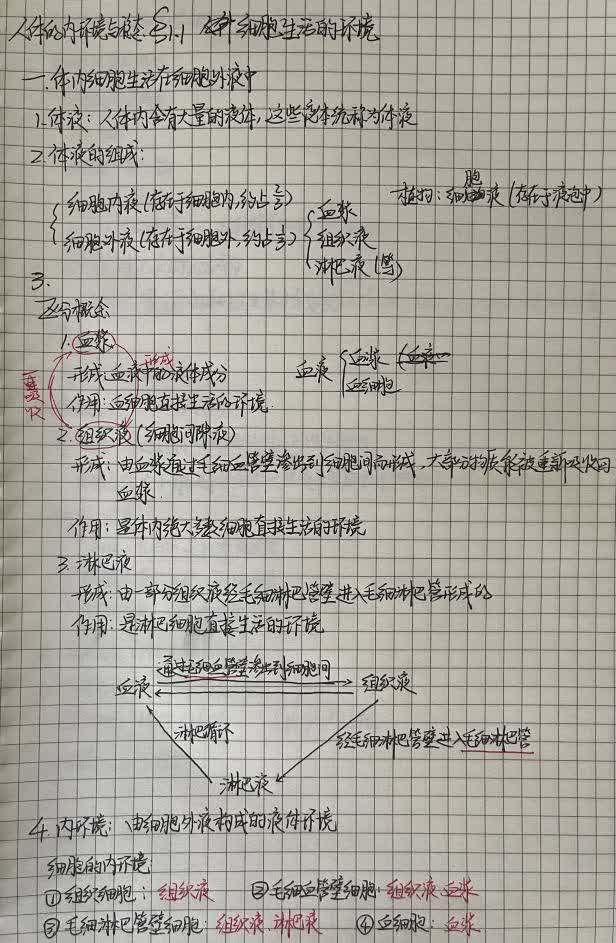 人体的内环境与稳态 §1.1 细胞生活的环境
一.体内细胞生活在细胞外液中
1.体液:人体内含有大量的液体,这些液体统称为体液
2.体液的组成:
植物:细胞液(存在于液泡中)
细胞内液(存在于细胞内,约占2/3)
细胞外液(存在于细胞外,约占1/3)
血浆
组织液
淋巴液(等)
3.
区分概念
1.血浆
形成:血液中的液体成分
作用:血细胞直接生活的环境
形成
重吸收
血液
血浆
血细胞
2.组织液(细胞间隙液)
形成:由血浆通过毛细血管壁渗出到细胞间而形成,大部分物质能被重新吸收回
血浆.
作用:是体内绝大多数细胞直接生活的环境
3.淋巴液
形成:由一部分组织液经毛细淋巴管壁进入毛细淋巴管形成的
作用:是淋巴细胞直接生活的环境
通过毛细血管壁渗出到细胞间
血液
组织液
淋巴循环
经毛细淋巴管壁进入毛细淋巴管
淋巴液
4.内环境:由细胞外液构成的液体环境
细胞的内环境:
①组织细胞:组织液 ②毛细血管壁细胞:组织液.血浆
③毛细淋巴管壁细胞:组织液.淋巴液 ④血细胞:血浆